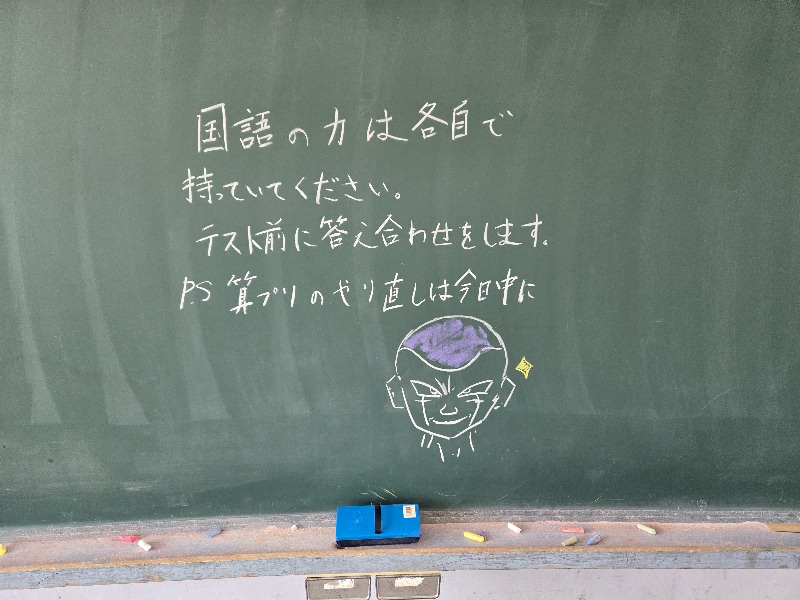 国語の力は各自で
持っていてください。
テスト前に答え合わせをします。
P.S 算プリのやり直しは今日中に